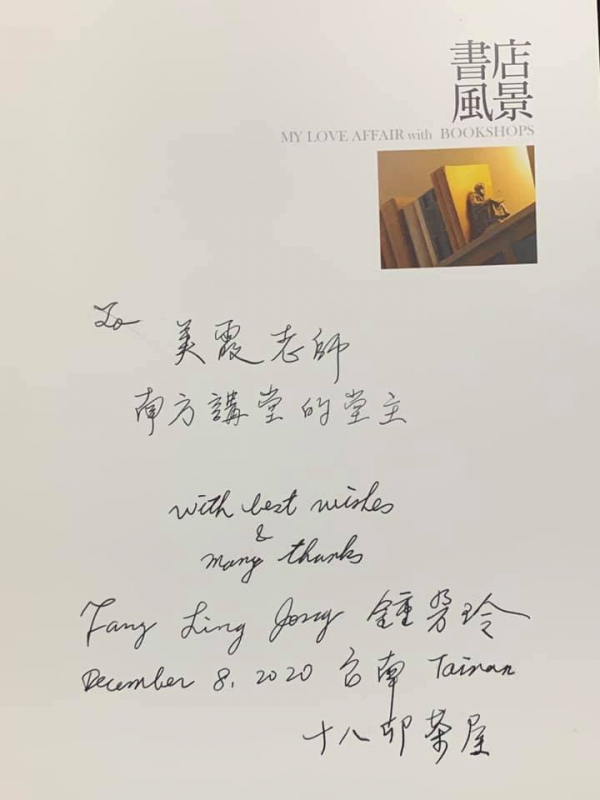 書店
風景
MY LOVE AFFAIR with BOOKSHOPS
To 美霞老師
南方講堂的堂主
with best wishes
&
many thanks
Fang Ling Jong 鍾芳玲
December 8, 2020 台南 Tainan
十八卯茶屋